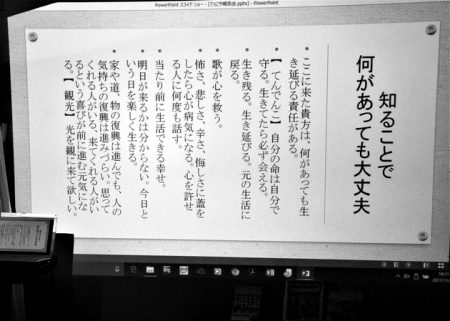 PowerPoint スライド ショー - [てらこや報告会.pptx] - PowerPoint
知ることで
何があっても大丈夫
• ここに来た貴方は、何があっても生
き延びる責任がある。
• 【てんでんこ】自分の命は自分で
守る。生きてたら必ず会える。
• 生き残る。生き延びる。元の生活に
戻る。
• 歌が心を救う。
• 怖さ、悲しさ、辛さ、悔しさに蓋を
したら心が病気になる。心を許せ
る人に何度も話す。
• 当たり前に生活できる幸せ。
• 明日が来るかは分からない。今日と
いう日を楽しく生きる。
• 家や道、物の復興は進んでも、人の
気持ちの復興は進みづらい。思って
くれる人がいる、来てくれる人がい
るという喜びが前に進む元気にな
る。【観光】光を観に来て欲しい。